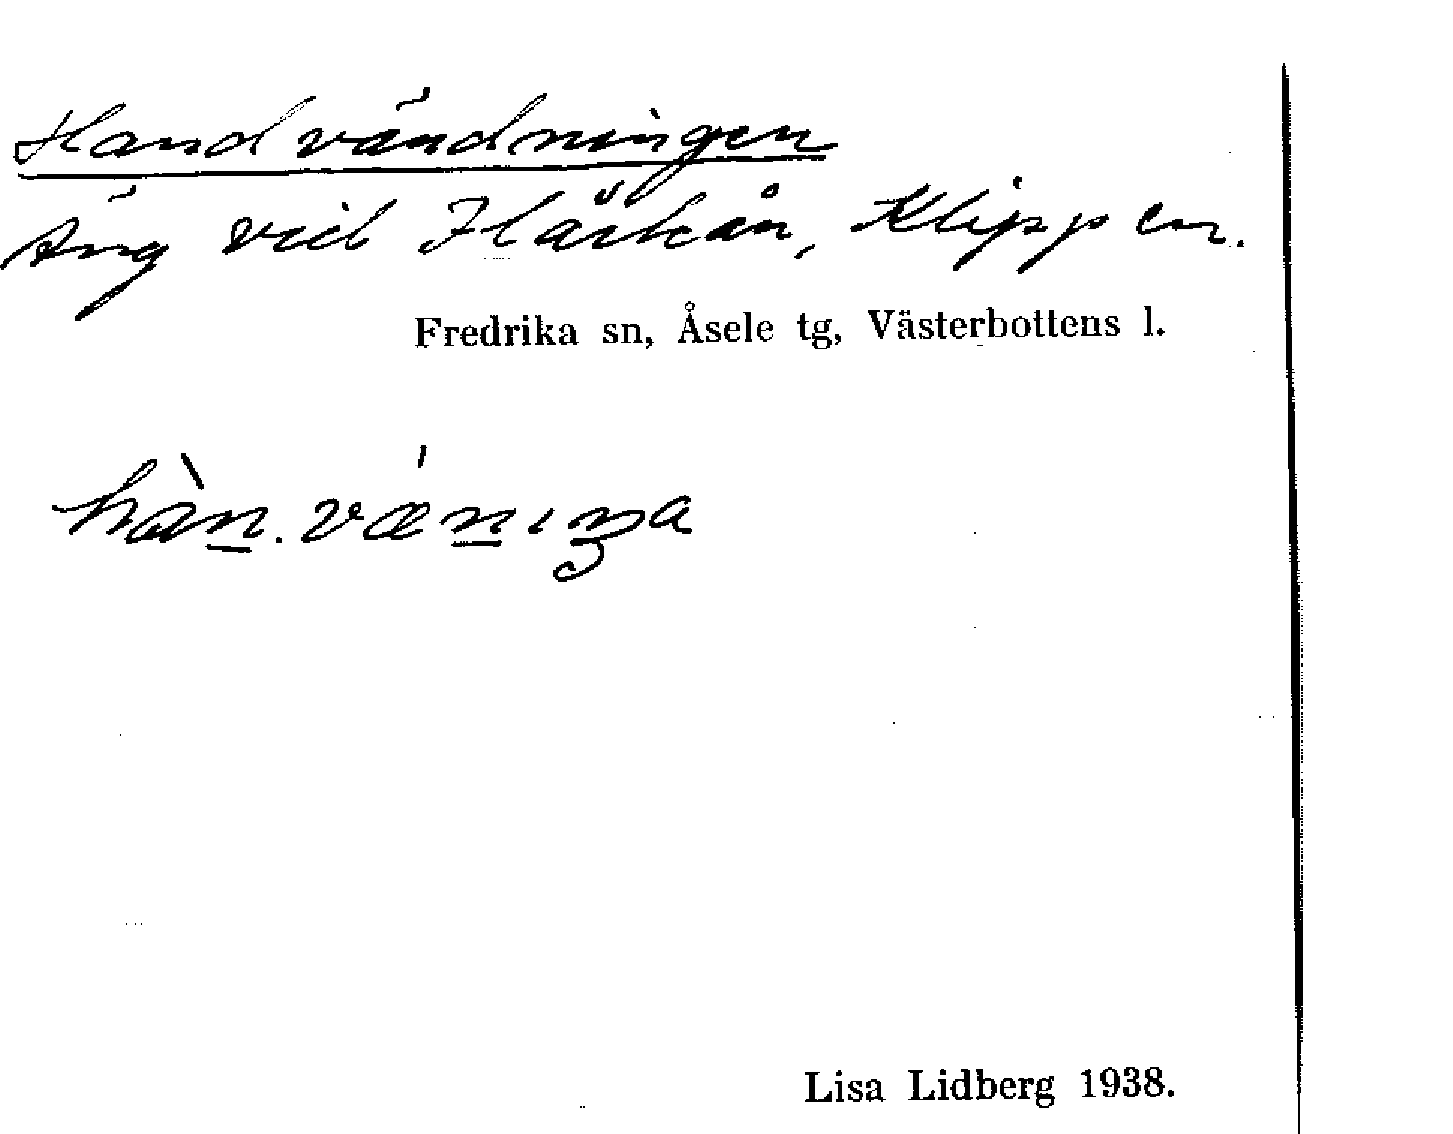 Handvändningen
Äng vid Flärkån, Klippen.
Fredrika sn, Åsele tg, Västerbottens l.
hàn̲.vǽn̲ıŋa
Lisa Lidberg 1938.